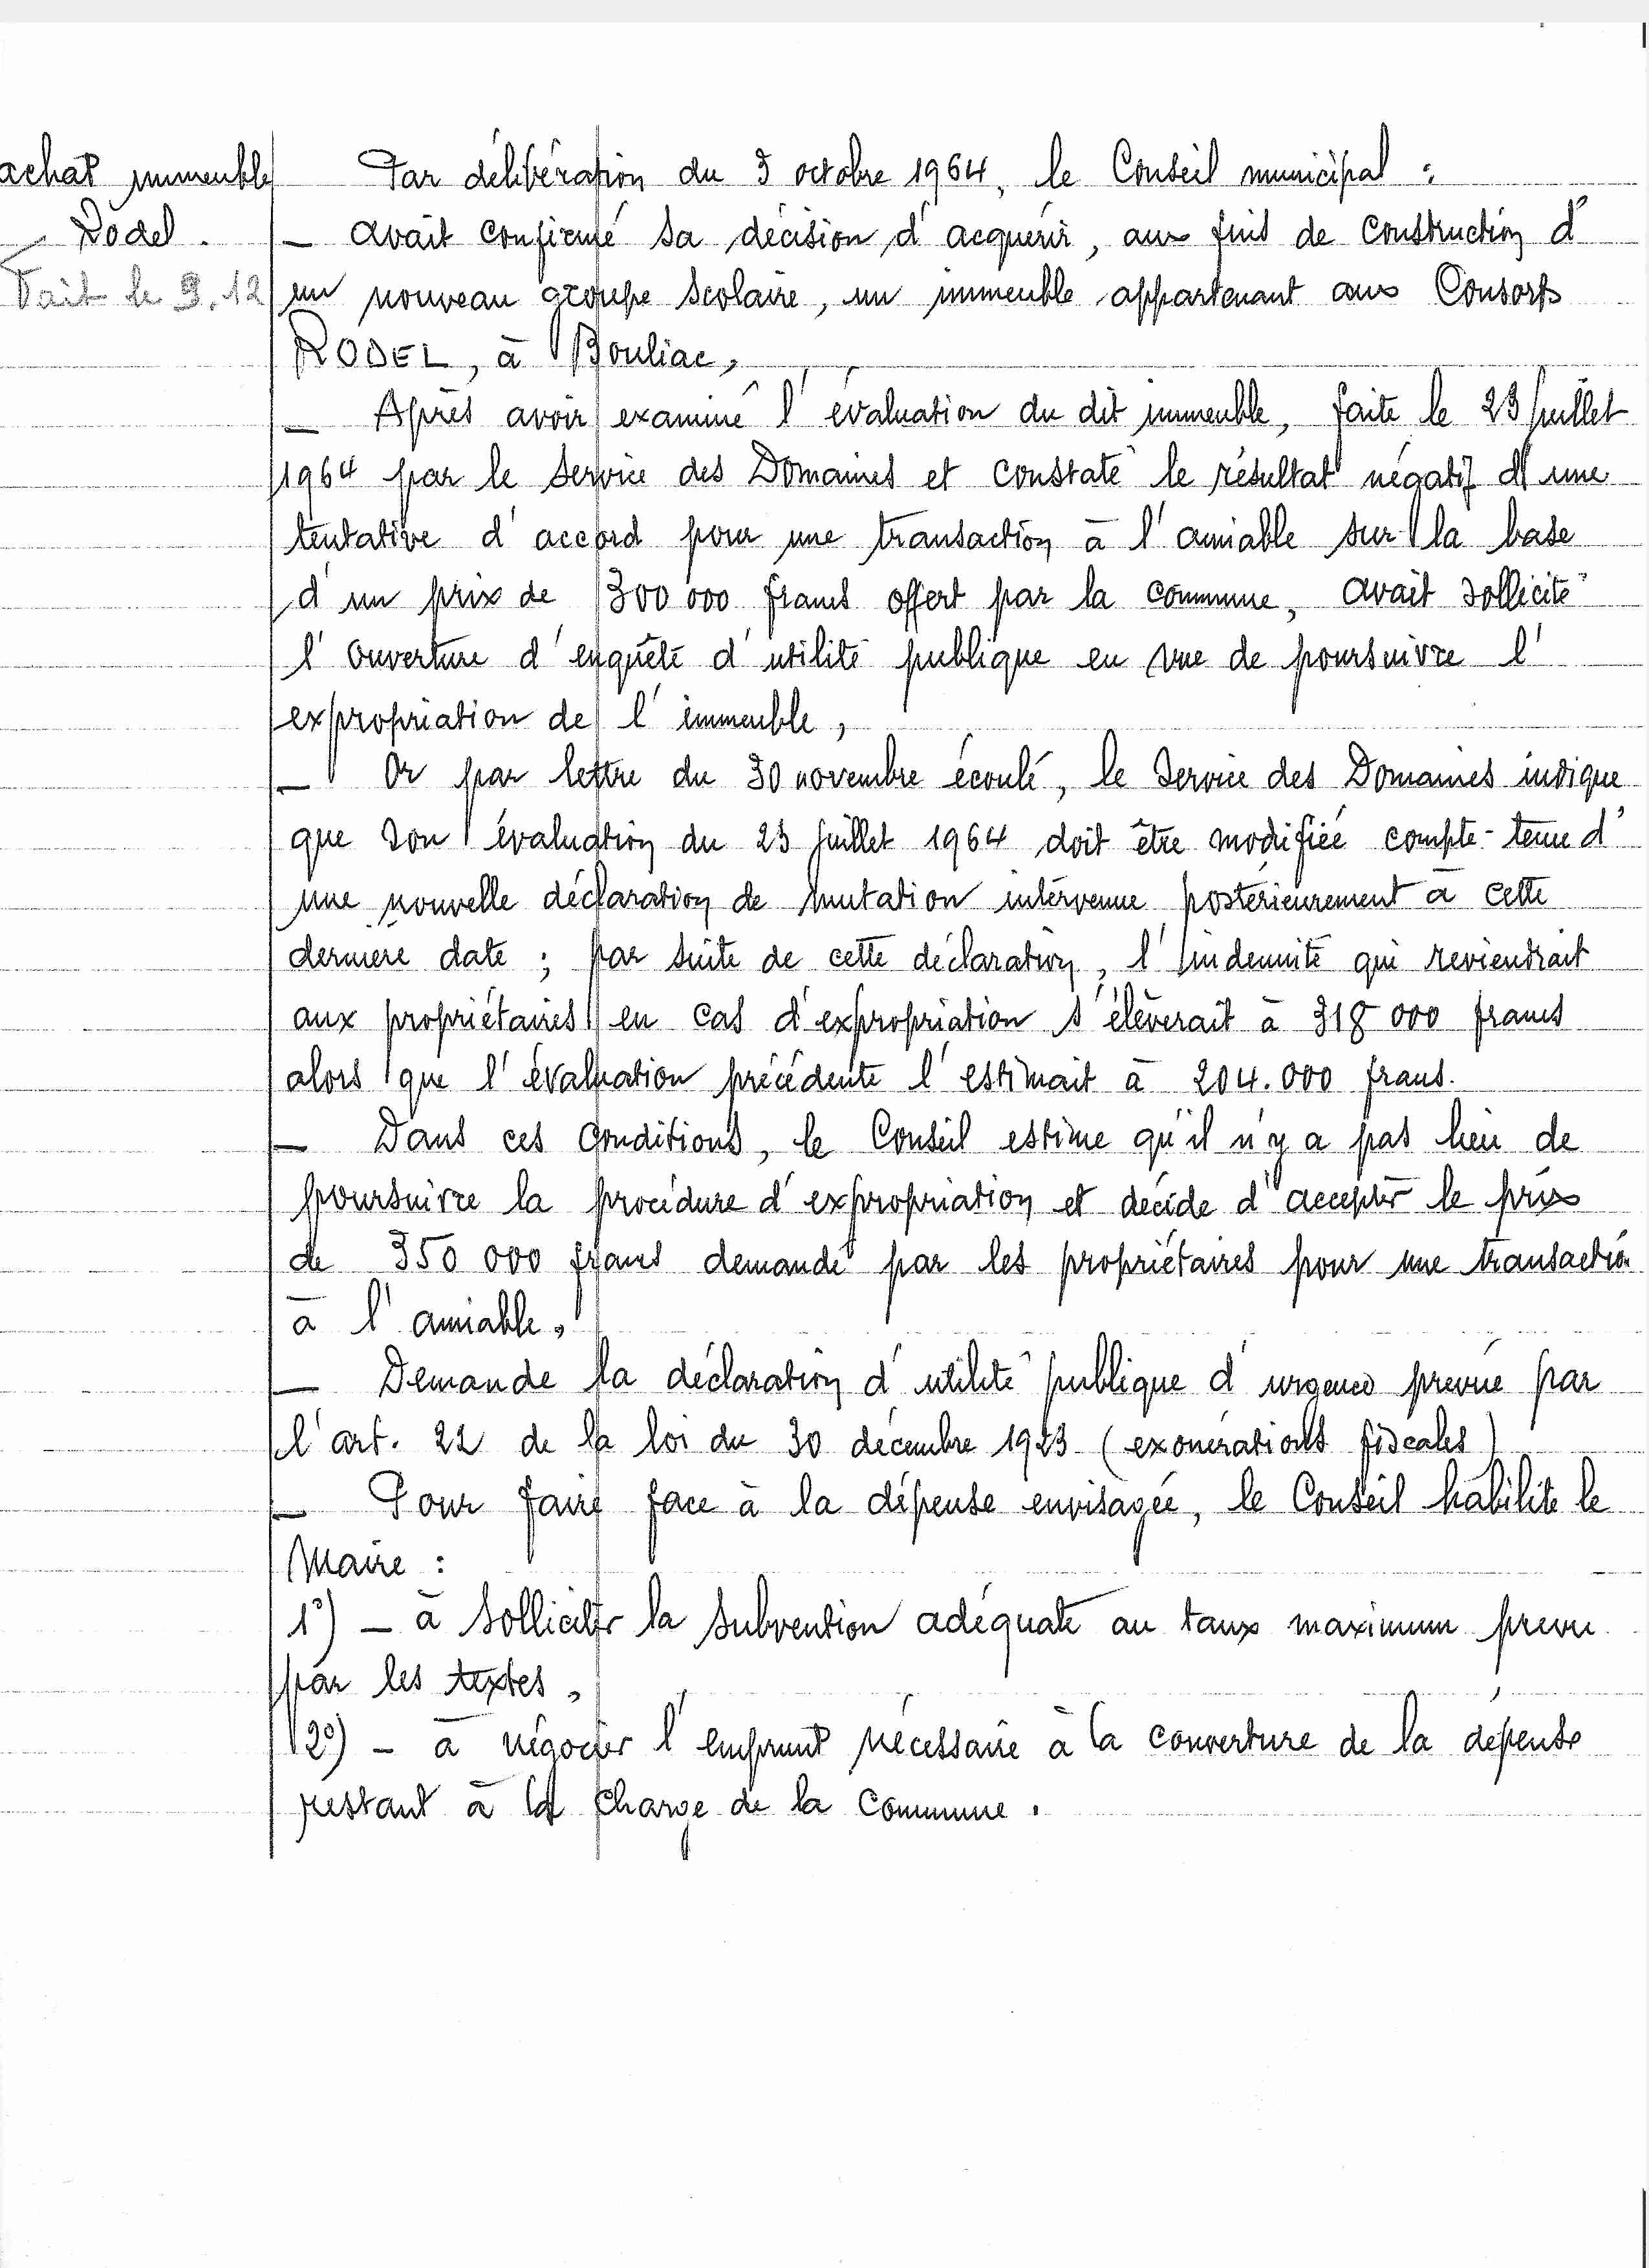 achat immeuble
Rodel.
Fait le 9.12
Par délibération du 9 octobre 1964, le Conseil municipal :
– avait confirmé sa décision d'acquérir, aux fins de construction d'
un nouveau groupe scolaire, un immeuble appartenant aux Consorts
RODEL, à Bouliac,
– Après avoir examiné l'évaluation du dit immeuble, faite le 23 juillet
1964 par le Service des Domaines et constaté le résultat négatif d'une
tentative d'accord pour une transaction à l'amiable sur la base
d'un prix de 300 000 francs offert par la commune, avait sollicité
l'ouverture d'enquête d'utilité publique en vue de poursuivre l'
expropriation de l'immeuble,
– Or par lettre du 30 novembre écoulé, le Service des Domaines indique
que son évaluation du 23 juillet 1964 doit être modifiée compte-tenu d'
une nouvelle déclaration de mutation intervenue postérieurement à cette
dernière date ; par suite de cette déclaration, l'indemnité qui reviendrait
aux propriétaires en cas d'expropriation s'élèverait à 318 000 francs
alors que l'évaluation précédente l'estimait à 204.000 francs.
– Dans ces conditions, le Conseil estime qu'il n'y a pas lieu de
poursuivre la procédure d'expropriation et décide d'accepter le prix
de 350 000 francs demandé par les propriétaires pour une transaction
à l'amiable,
– Demande la déclaration d'utilité publique d'urgence prévue par
l'art. 22 de la loi du 30 décembre 1923 (exonérations fiscales)
– Pour faire face à la dépense envisagée, le Conseil habilite le
Maire :
1°) – à solliciter la subvention adéquate au taux maximum prévu
par les textes,
2°) – à négocier l'emprunt nécessaire à la couverture de la dépense
restant à la charge de la commune.